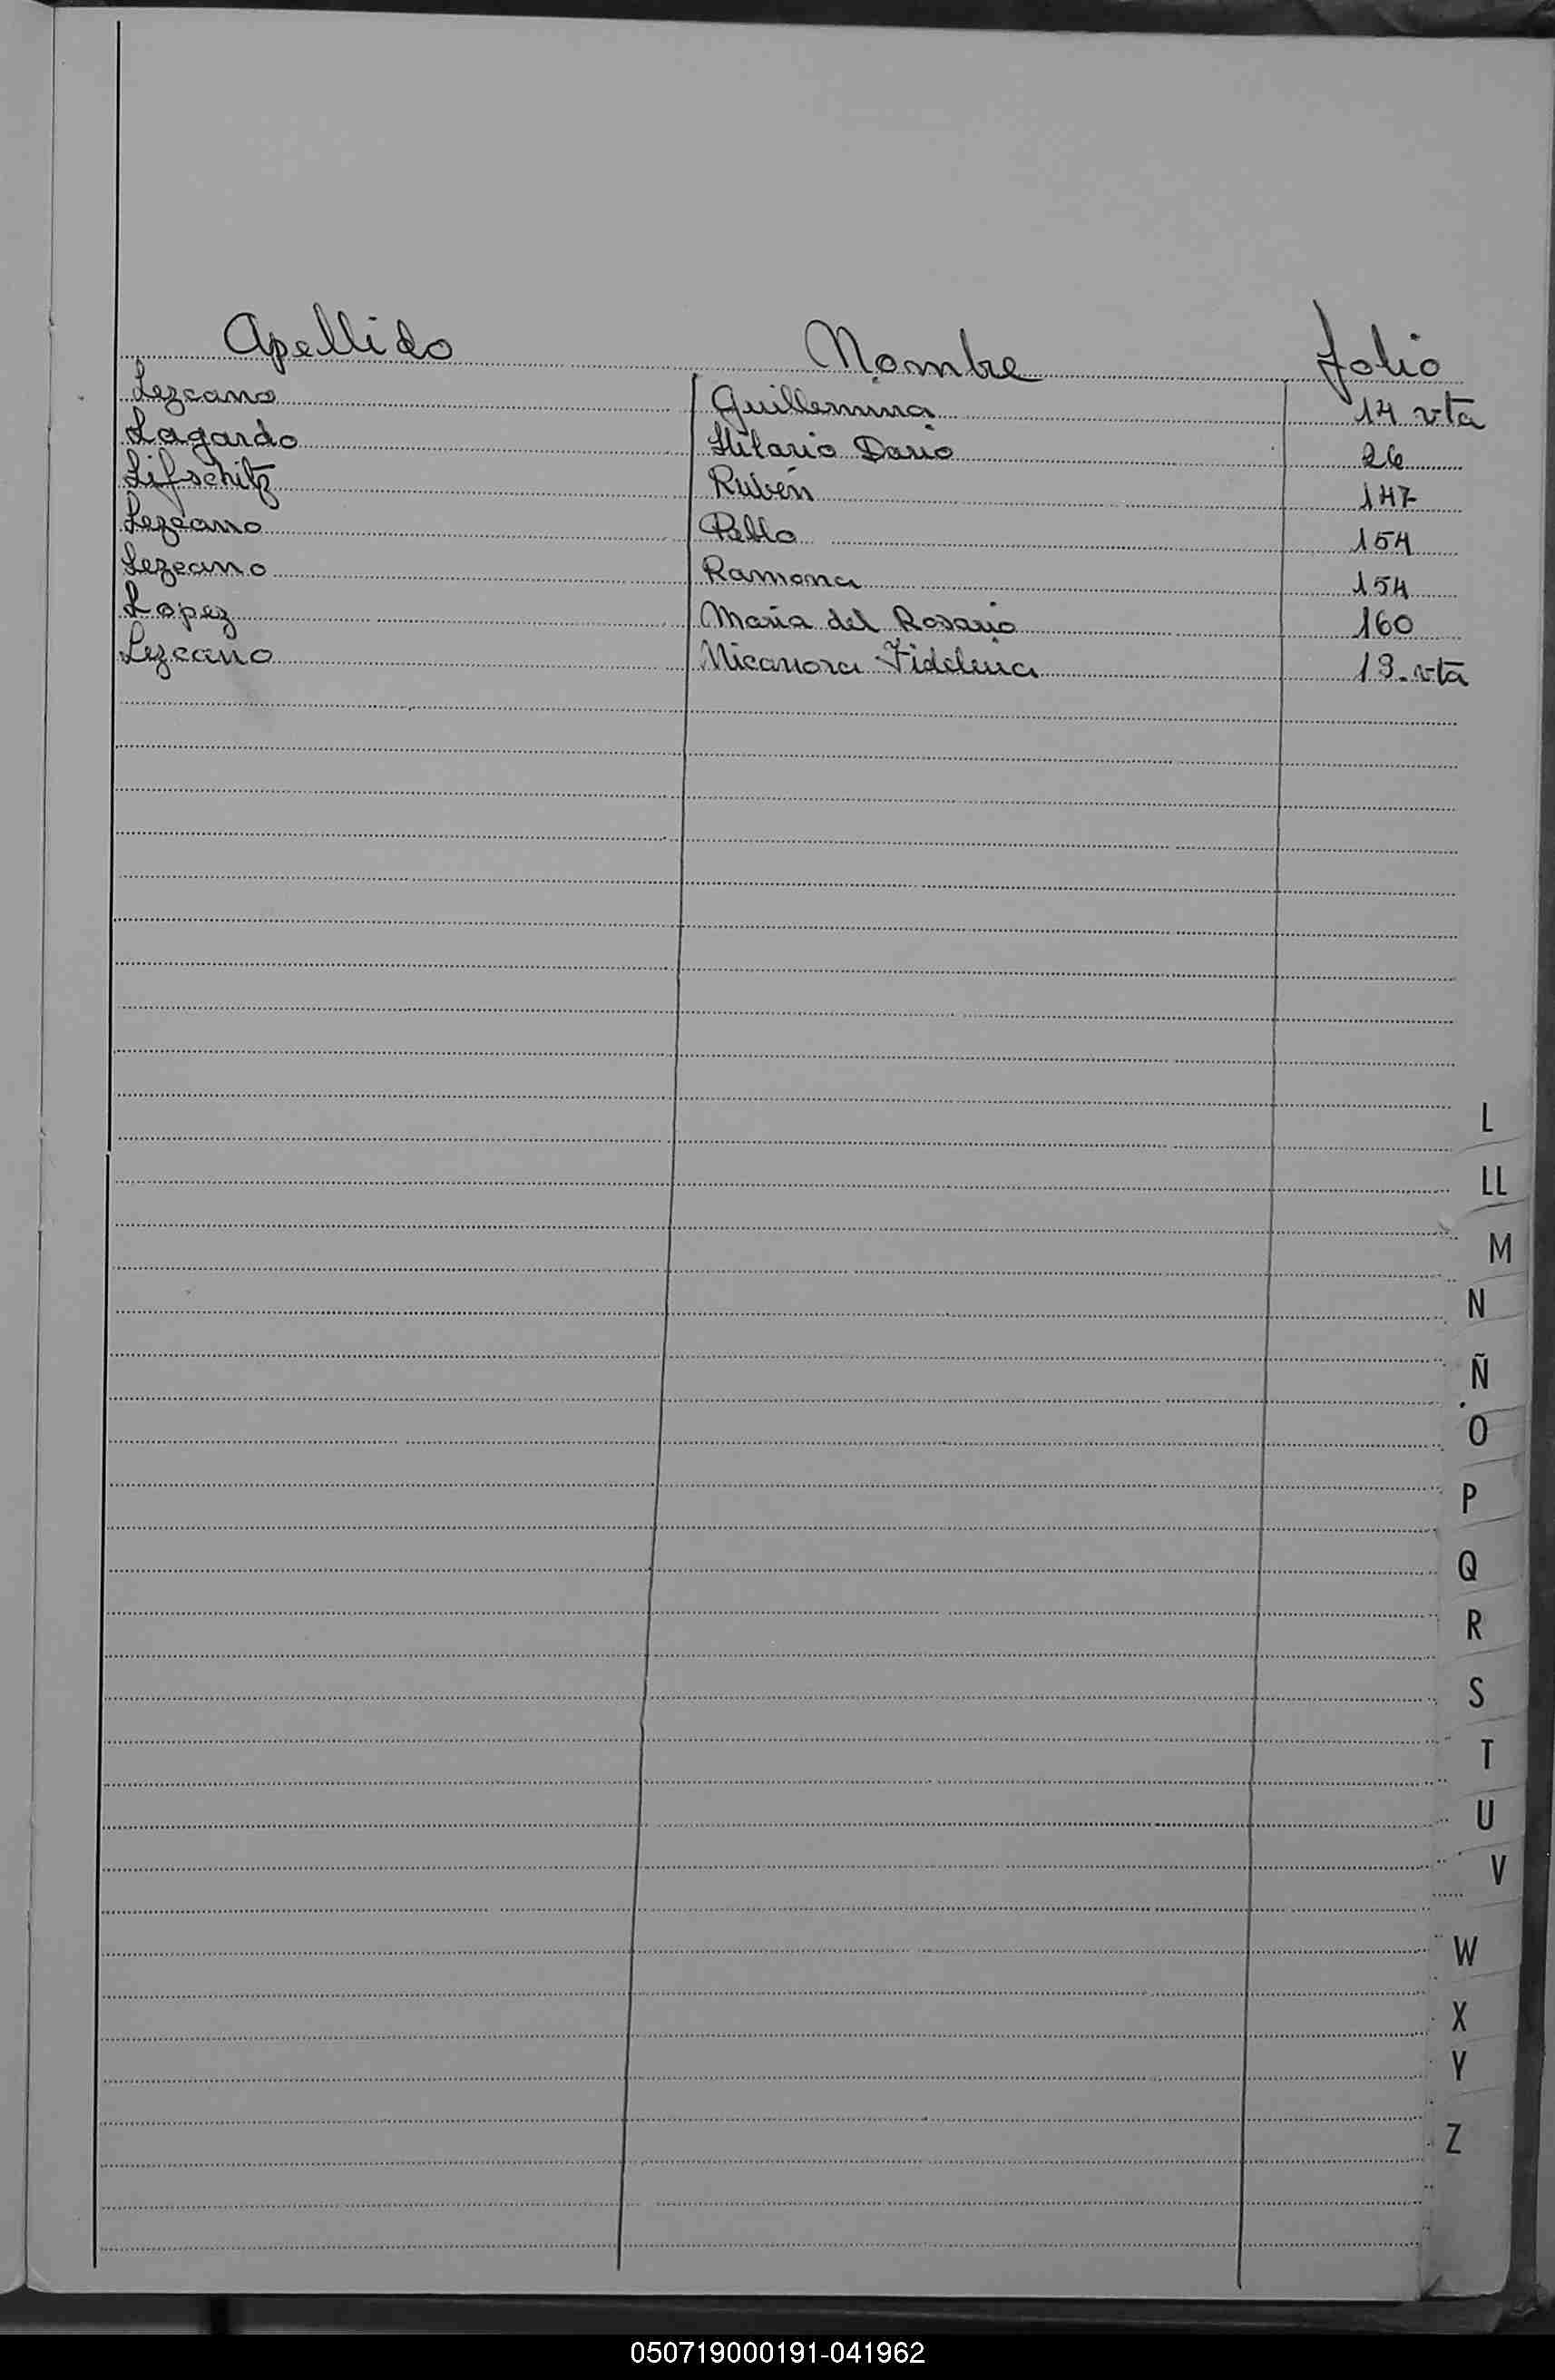 Apellido Nombre folio
Lezcano Guillermina 14 vta
Lagardo Hilario Dario 26
Lifschitz Rubén 147
Lezcano Pablo 154
Lezcano Ramona 154
Lopez María del Rosario 160
Lezcano Nicanora Fidelina 19. vta
L
LL
M
N
Ñ
O
P
Q
R
S
T
U
V
W
X
Y
Z
050719000191-041962